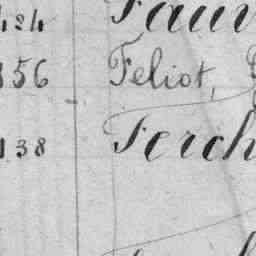 424 Fauv
156 Feliot,
138 Ferch